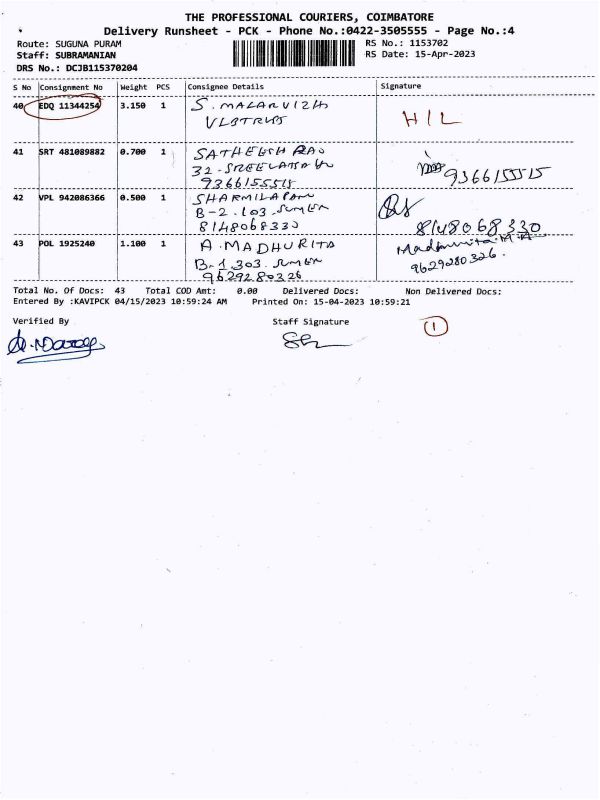 THE PROFESSIONAL COURIERS, COIMBATORE
Delivery Runsheet - PCK - Phone No.:0422-3505555 - Page No.:4
Route: SUGUNA PURAM
RS No.: 1153702
Staff: SUBRAMANIAN
RS Date: 15-Apr-2023
DRS No.: DCJB115370204
S No Consignment No Weight PCS Consignee Details Signature
40 EDQ 11344254 3.150 1 S. MALARVIZH
HIL
41 SRT 481089882 0.700 1 SATHEESH RAO
32
9366155515 9366155515
42 VPL 942086366 0.500 1 SHARMILA
B-2.103.
8148068330 8148068330
43 POL 1925240 1.100 1 A. MADHURITA
B-1.303.
9629280326 9629280326.
Total No. Of Docs: 43 Total COD Amt: 0.00 Delivered Docs: Non Delivered Docs:
Entered By :KAVIPCK 04/15/2023 10:59:24 AM Printed On: 15-04-2023 10:59:21
Verified By Staff Signature 1